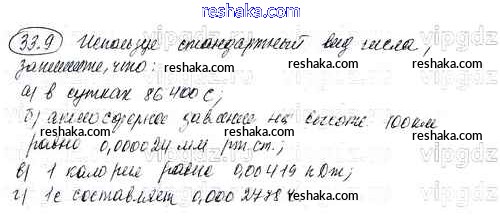 reshaka.com
33.9 Используя стандартный вид числа,
запишите, что:
reshaka.com reshaka.com
а) в сутках 86400 с;
б) атмосферное давление на высоте 100 км
reshaka.com reshaka.com
равно 0,000024 мм рт. ст.;
в) 1 калория равна 0,00419 кДж;
reshaka.com reshaka.com
г) 1 с составляет 0,000278 ч
vipgdz